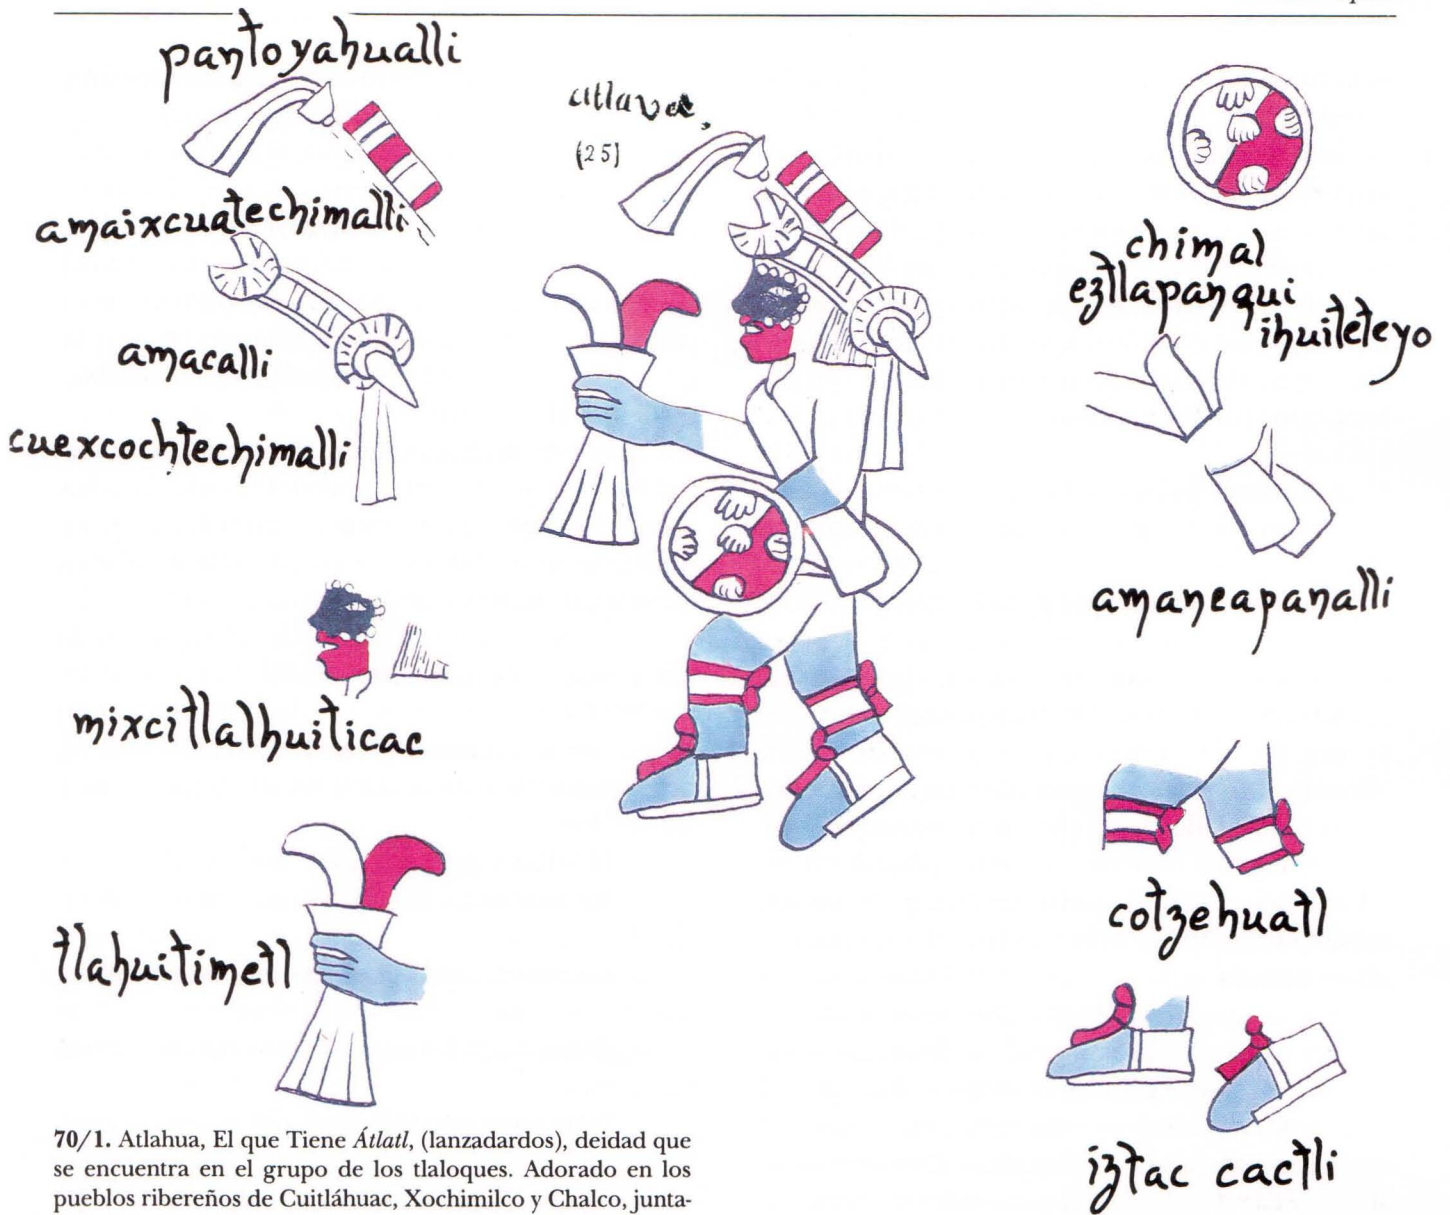 pantoyahualli
amaixcuatechimalli
amacalli
cuexcochtechimalli
mixcitlalhuiticac
tlahuitimetl
atlava,
(25)
chimal
eztlapanqui
ihuiteteyo
amaneapanalli
cotzehuatl
iztac cactli
70/1. Atlahua, El que Tiene Átlatl, (lanzadardos), deidad que
se encuentra en el grupo de los tlaloques. Adorado en los
pueblos ribereños de Cuitláhuac, Xochimilco y Chalco, junta-